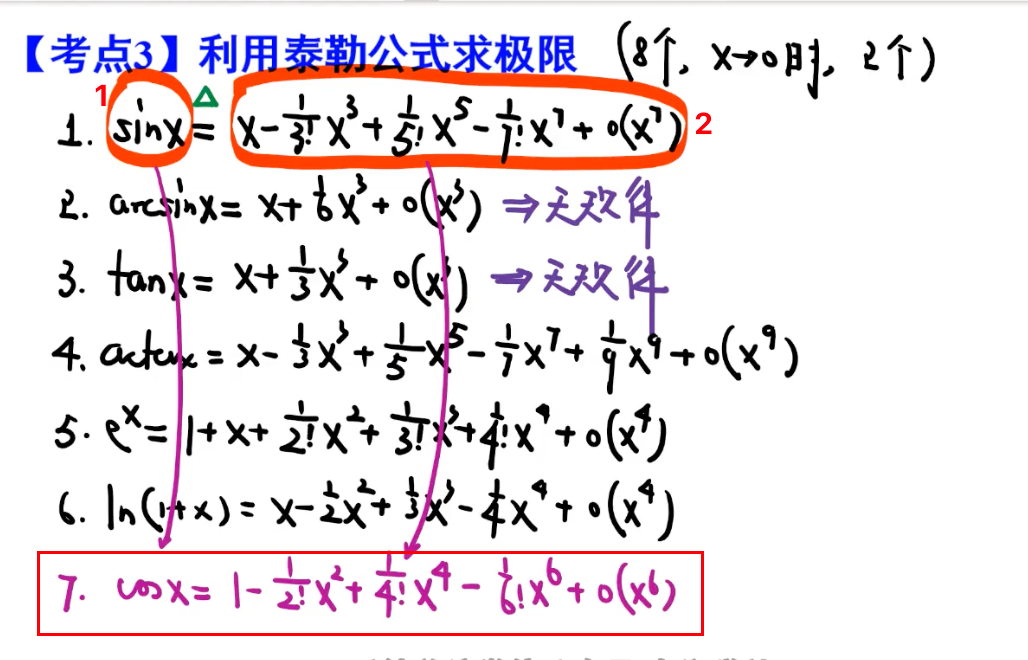 【考点3】利用泰勒公式求极限 (8个, x→0时, 2个)
1 △ 2
1. sinx = x - 1/3! x³ + 1/5! x⁵ - 1/7! x⁷ + o(x⁷)
2. arcsinx = x + 1/6 x³ + o(x³) ⇒ 无欢佯
3. tanx = x + 1/3 x³ + o(x³) ⇒ 无欢佯
4. arctanx = x - 1/3 x³ + 1/5 x⁵ - 1/7 x⁷ + 1/9 x⁹ + o(x⁹)
5. eˣ = 1 + x + 1/2! x² + 1/3! x³ + 1/4! x⁴ + o(x⁴)
6. ln(1+x) = x - 1/2 x² + 1/3 x³ - 1/4 x⁴ + o(x⁴)
7. cosx = 1 - 1/2! x² + 1/4! x⁴ - 1/6! x⁶ + o(x⁶)